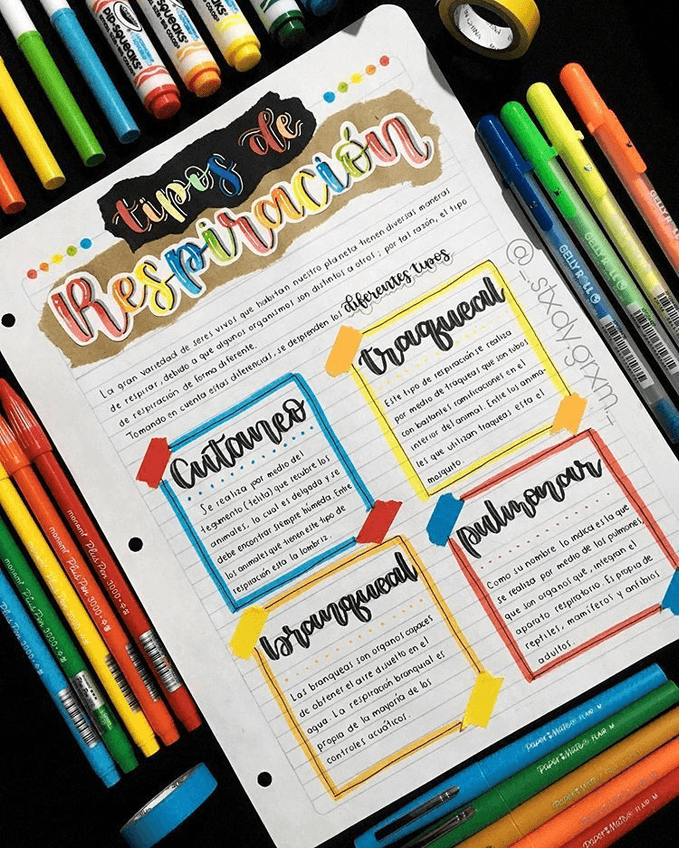 tipos de
Respiración
La gran variedad de seres vivos que habitan nuestro planeta tienen diversas maneras
de respirar, debido a que algunos organismos son distintos a otros; por tal razón, el tipo
de respiración de forma diferente.
Tomando en cuenta estas diferencias, se desprenden los diferentes tipos
traqueal
Este tipo de respiración se realiza
por medio de traqueas que son tubos
con bastantes ramificaciones en el
interior del animal. Entre los anima-
les que utilizan traqueas esta el
mosquito.
Cutaneo
Se realiza por medio del
tegumento (telita) que recubre los
animales, la cual es delgada y se
debe encontrar siempre húmeda. Entre
los animales que tienen este tipo de
respiración esta la lombriz.
pulmonar
Como su nombre lo indica es la que
se realiza por medio de los pulmones,
que son organos que integran el
aparato respiratorio. Es propia de
reptiles, mamíferos y anfibios
adultos.
branqueal
Las branqueas son organos capaces
de obtener el aire disuelto en el
agua. La respiración branquial es
propia de la mayoría de los
controles acuáticos.
@_.stxdygrxm._
Pip-Squeaks
Pip-Squeaks
Pip-Squeaks
IN CHINA
GELLY ROLL
GELLY ROLL
GELLY R
monami Plus Pen 3000
monami Plus Pen 3000
monami Plus Pen 3000
monami Plus Pen 3000
Paper:Mate FLAIR M
Paper:Mate FLAIR M
Paper:Mate FLAIR M
Paper:Mate FLAIR M